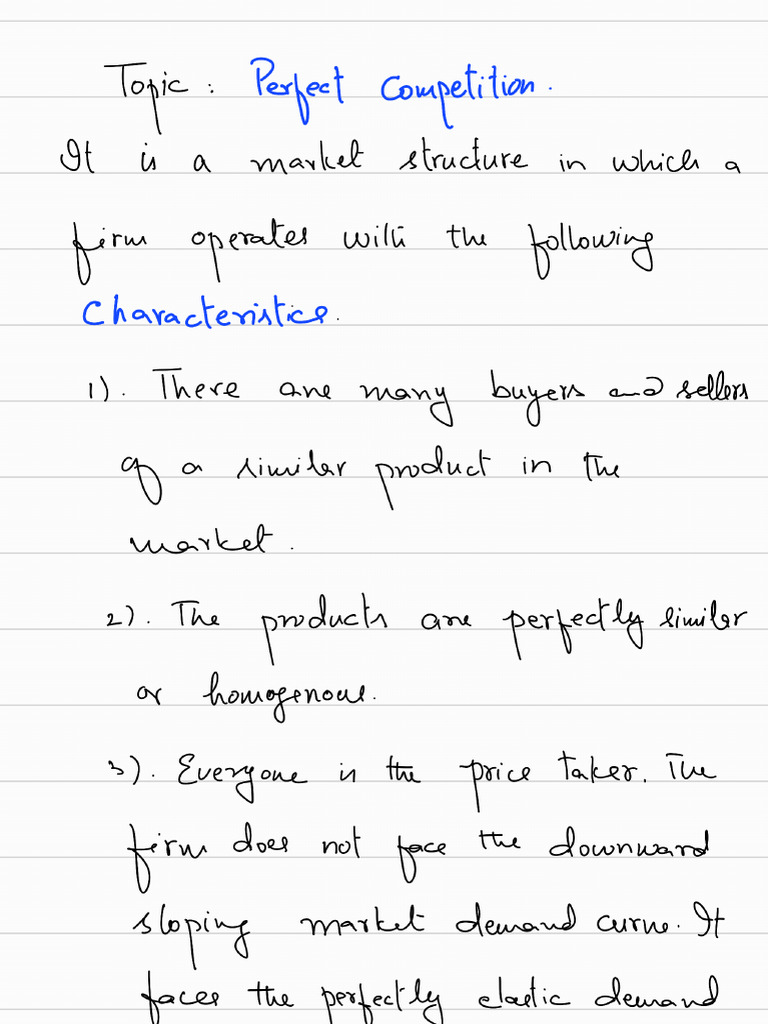 Topic: Perfect Competition.
It is a market structure in which a
firm operates with the following
Characteristics.
1). There are many buyers and sellers
of a similar product in the
market.
2). The products are perfectly similar
or homogenous.
3). Everyone is the price taker. The
firm does not face the downward
sloping market demand curve. It
faces the perfectly elastic demand